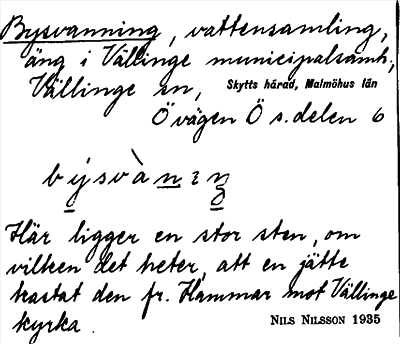 Bysvanning, vattensamling,
äng i Vällinge municipalsamh,
Vällinge sn, Skytts härad, Malmöhus län
Ö vägen Ö s. delen 6
Här ligger en stor sten, om
vilken det heter, att en jätte
kastat den fr. Hammar mot Vällinge
kyrka.
NILS NILSSON 1935